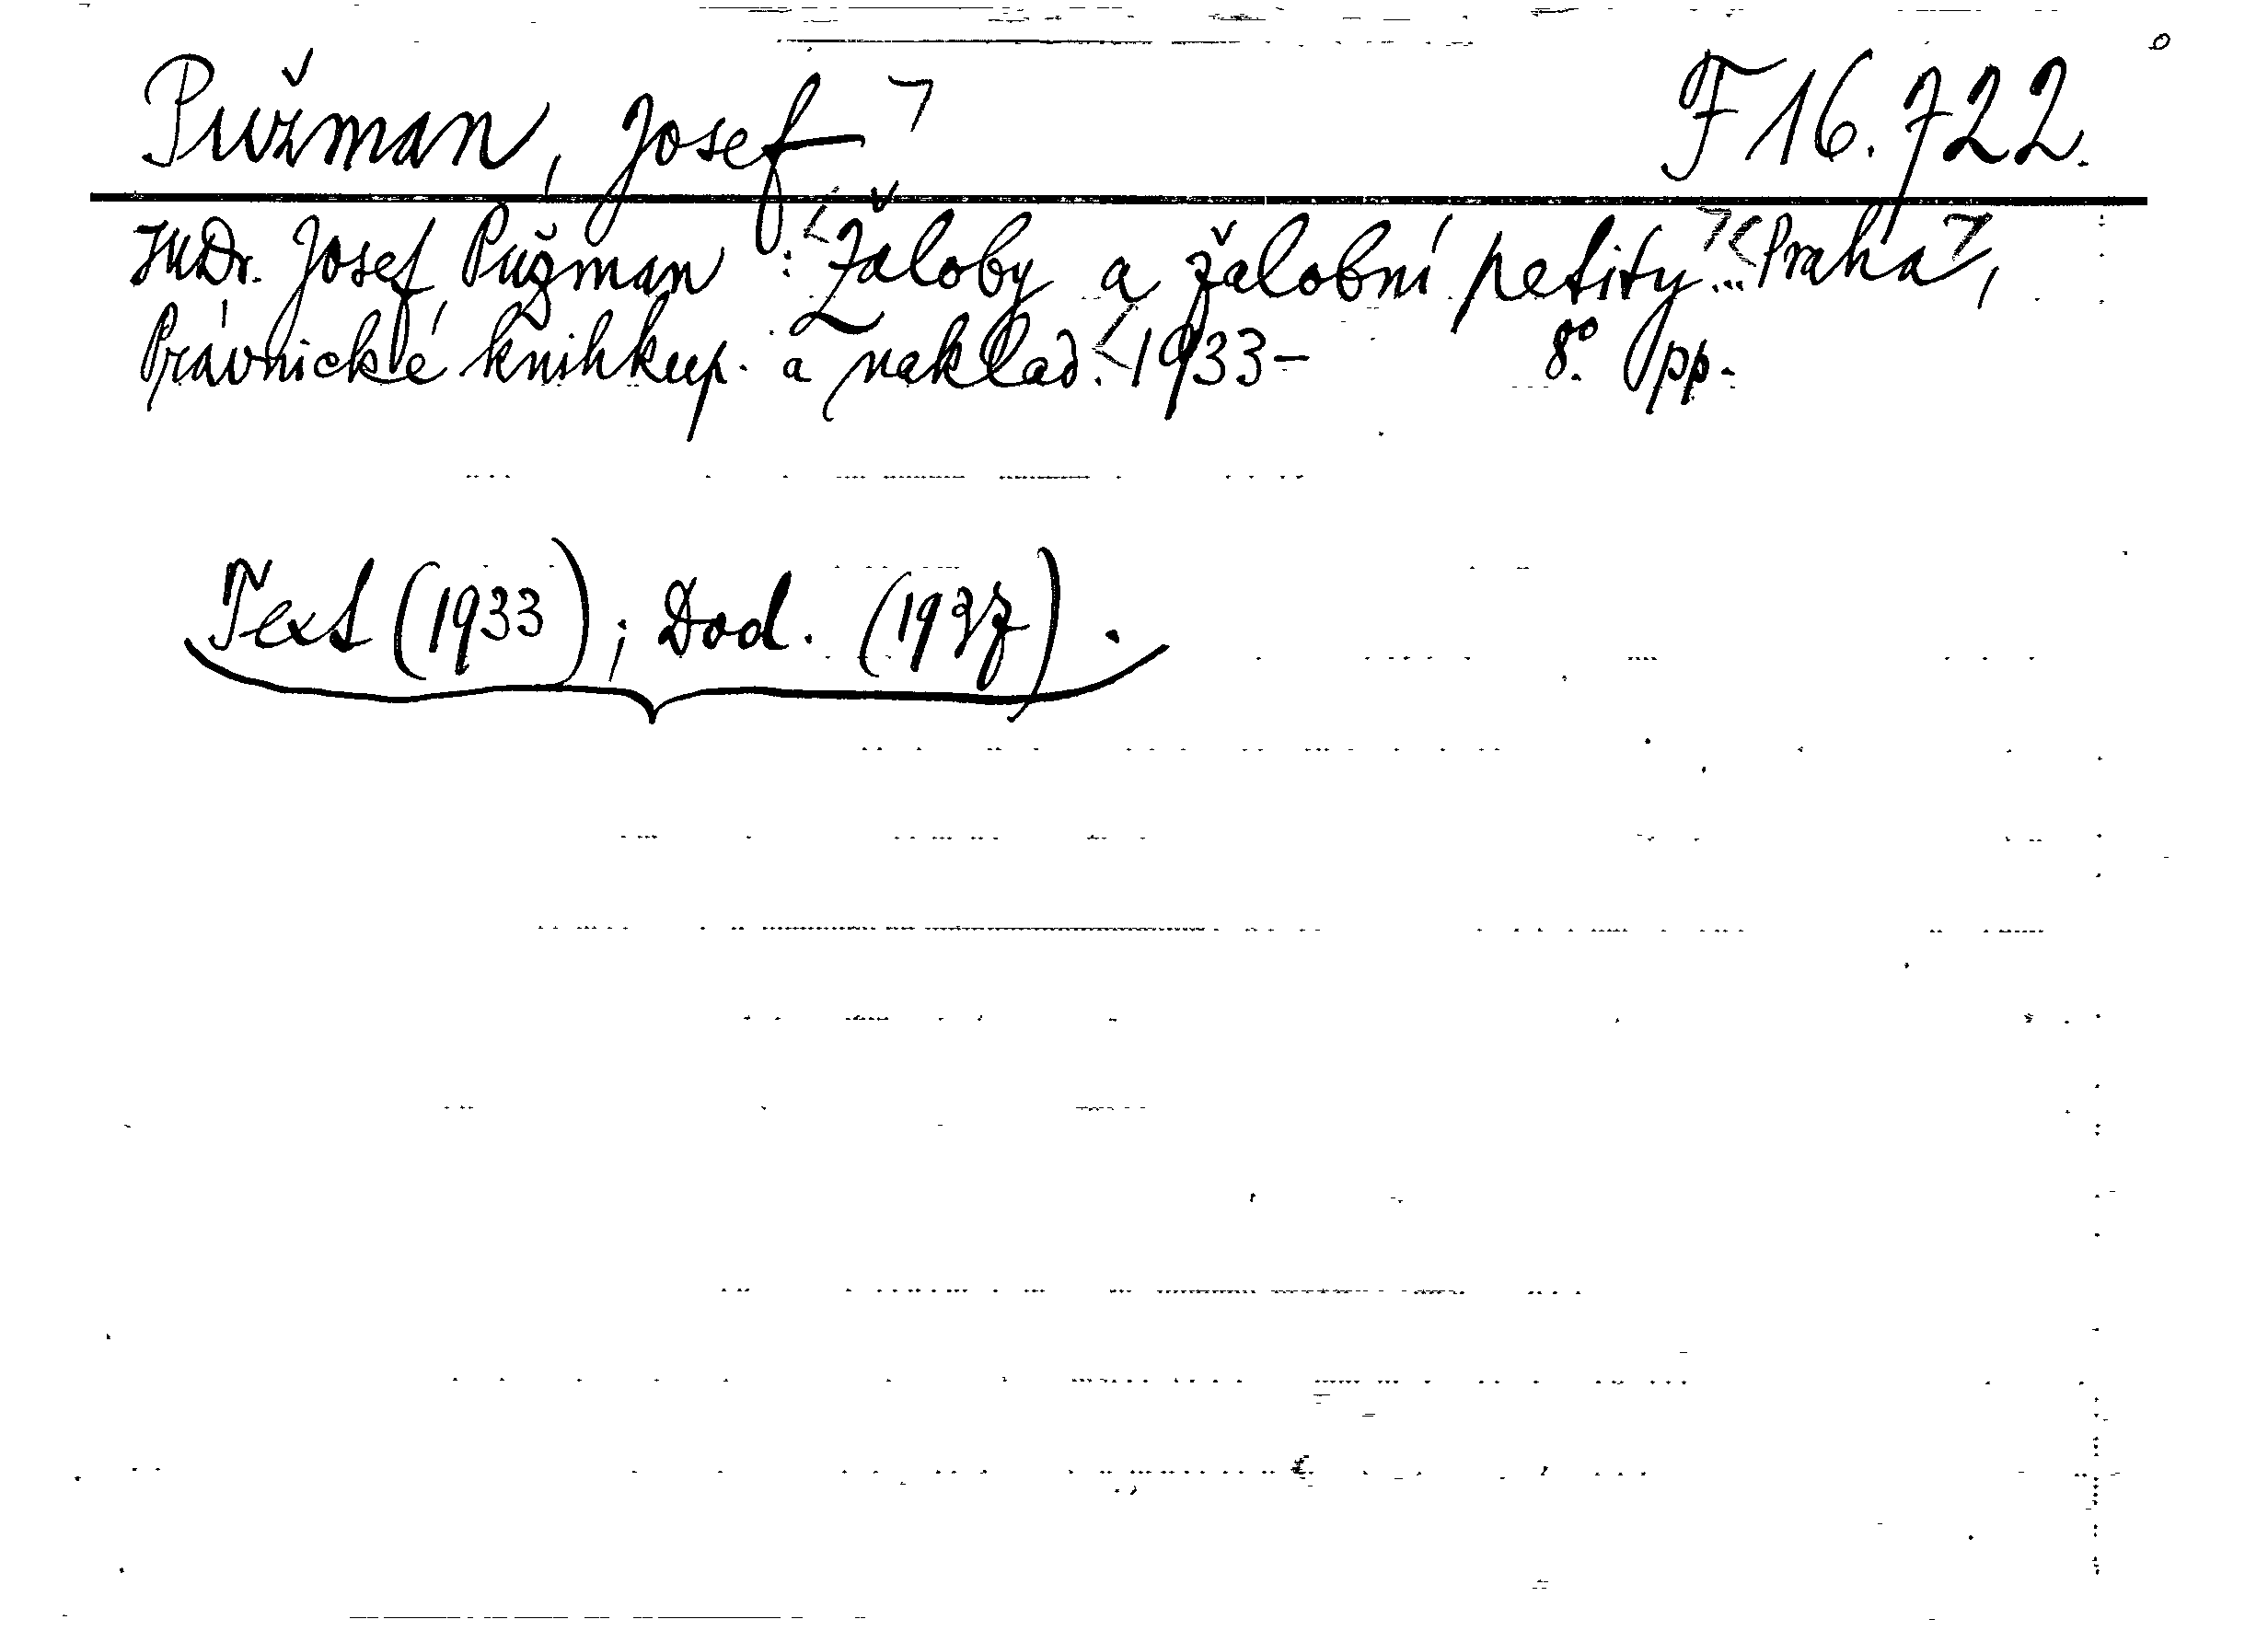 Pužman, Josef F 16.722.
JUDr. Josef Pužman: Žaloby a žalobní petity... Praha,
Právnické knihkup. a naklad. 1933- 8°. pp.
Text (1933); Dod. (1937).